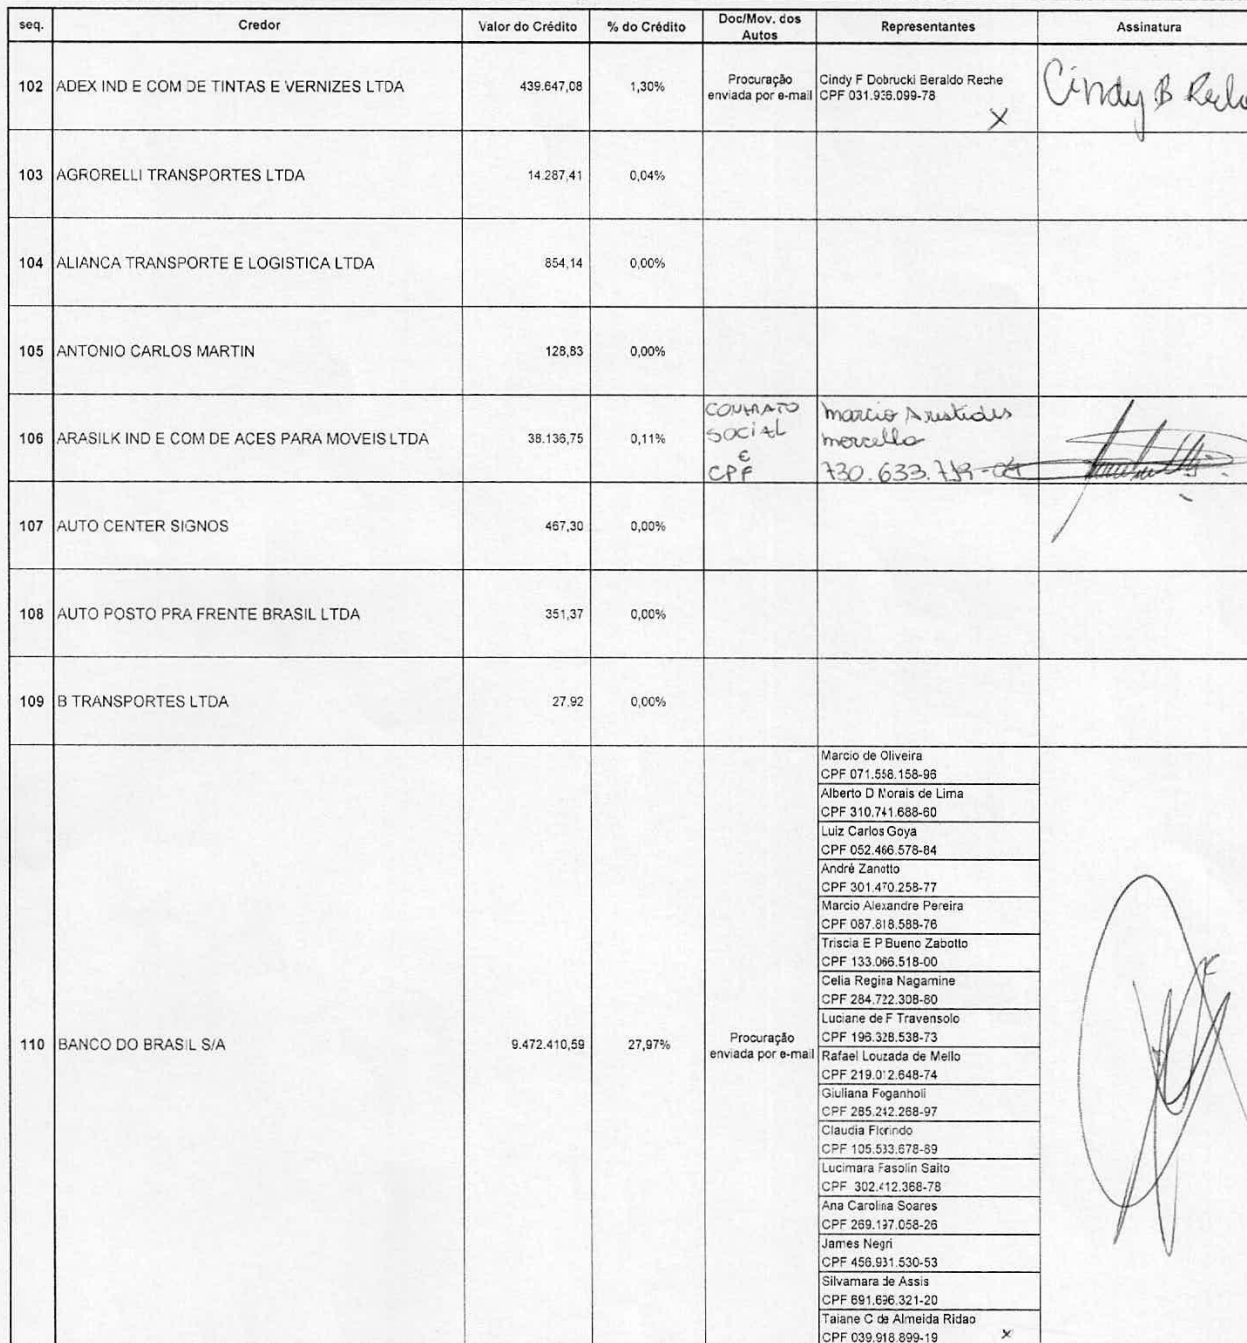 seq. Credor Valor do Crédito % do Crédito Doc/Mov. dos Autos Representantes Assinatura
102 ADEX IND E COM DE TINTAS E VERNIZES LTDA 439.647,08 1,30% Procuração enviada por e-mail Cindy F Dobrucki Beraldo Reche
CPF 031.936.099-78
X
Cindy B Reche
103 AGRORELLI TRANSPORTES LTDA 14.287,41 0,04%
104 ALIANCA TRANSPORTE E LOGISTICA LTDA 854,14 0,00%
105 ANTONIO CARLOS MARTIN 128,83 0,00%
106 ARASILK IND E COM DE ACES PARA MOVEIS LTDA 38.136,75 0,11%
CONTRATO
SOCIAL
E
CPF
Marcio Aristides
mercello
730.633.719-04
107 AUTO CENTER SIGNOS 467,30 0,00%
108 AUTO POSTO PRA FRENTE BRASIL LTDA 351,37 0,00%
109 B TRANSPORTES LTDA 27,92 0,00%
110 BANCO DO BRASIL S/A 9.472.410,59 27,97% Procuração enviada por e-mail
Marcio de Oliveira
CPF 071.558.158-96
Alberto D Morais de Lima
CPF 310.741.688-60
Luiz Carlos Goya
CPF 052.466.578-84
André Zanotto
CPF 301.470.258-77
Marcio Alexandre Pereira
CPF 087.818.588-76
Triscia E P Bueno Zabotto
CPF 133.066.518-00
Celia Regina Nagamine
CPF 284.722.308-80
Luciane de F Travensolo
CPF 196.328.538-73
Rafael Louzada de Mello
CPF 219.012.648-74
Giuliana Foganholi
CPF 285.242.268-97
Claudia Florindo
CPF 105.533.678-89
Lucimara Fasolin Saito
CPF 302.412.368-78
Ana Carolina Soares
CPF 269.197.058-26
James Negri
CPF 456.931.530-53
Silvamara de Assis
CPF 691.696.321-20
Taiane C de Almeida Ridao
CPF 039.918.899-19 x